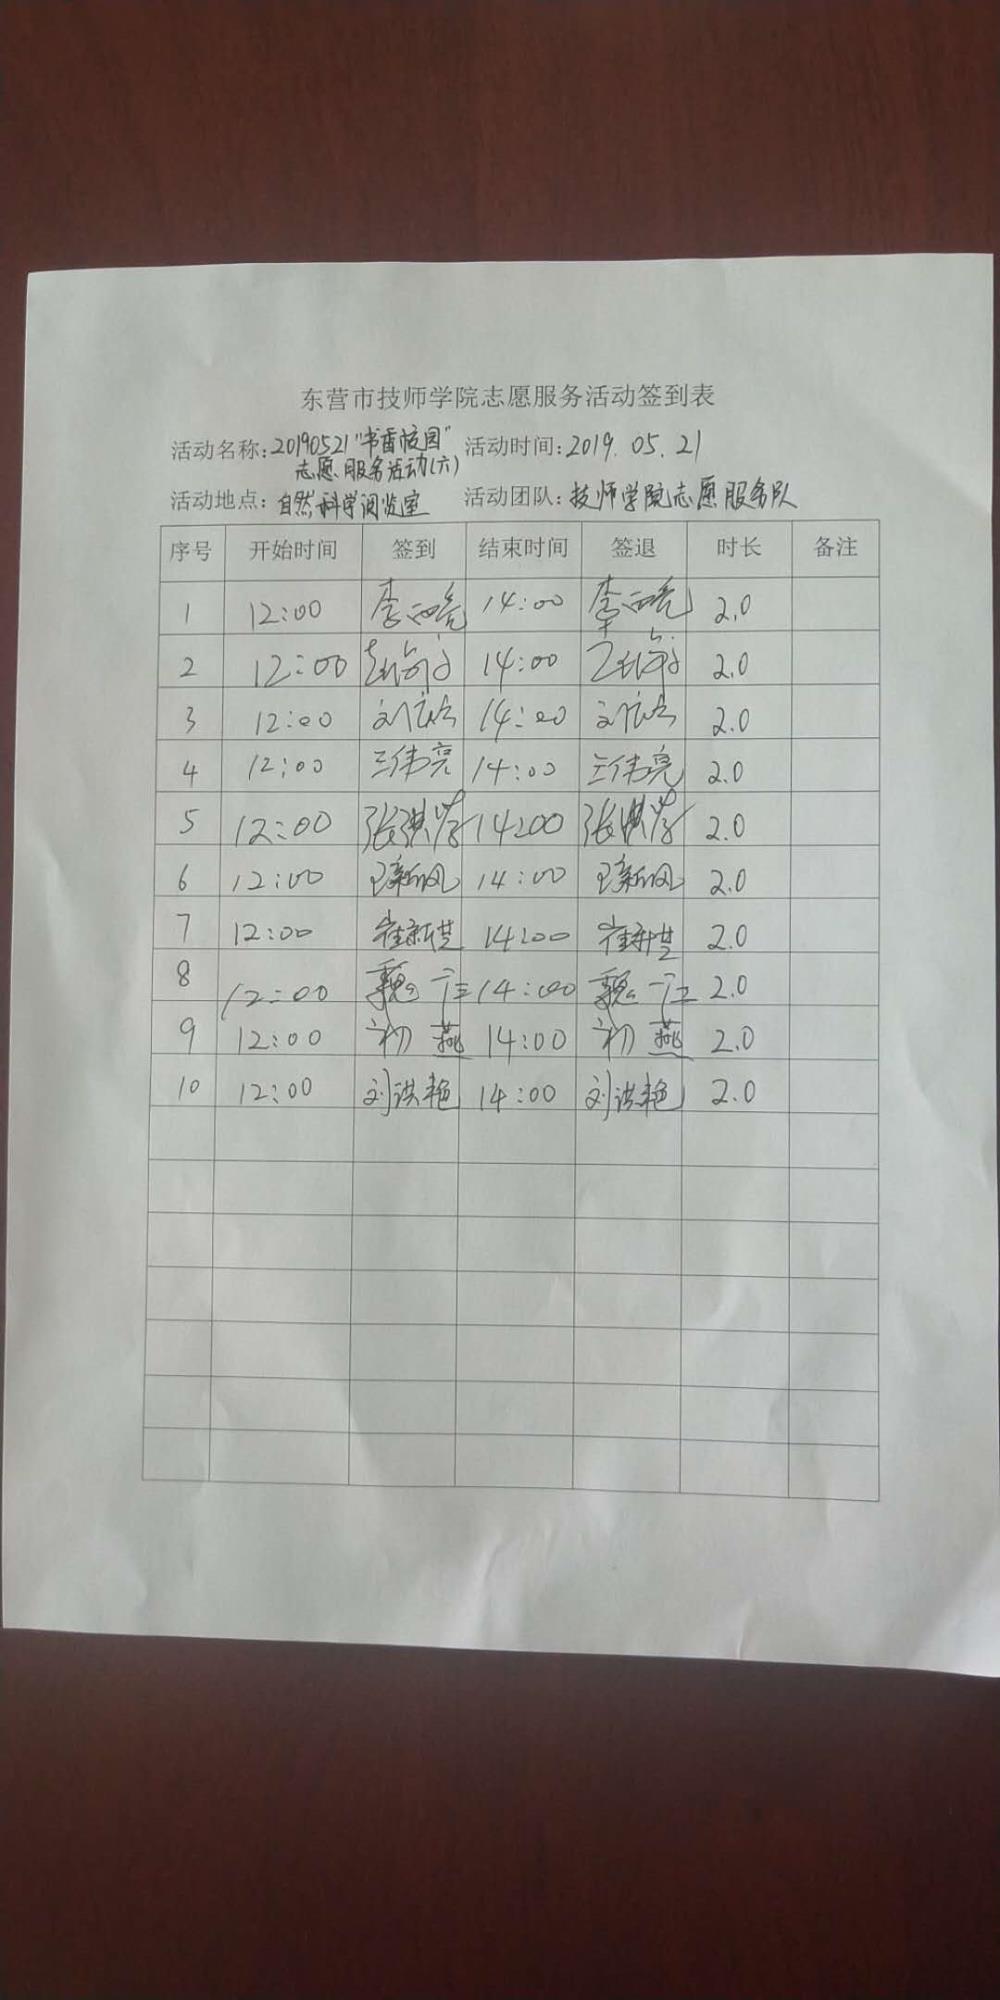 东营市技师学院志愿服务活动签到表
活动名称:20190521"书香校园" 活动时间:2019.05.21
志愿服务活动(六)
活动地点:自然科学阅览室 活动团队:技师学院志愿服务队
序号 开始时间 签到 结束时间 签退 时长 备注
1 12:00 14:00 2.0
2 12:00 14:00 2.0
3 12:00 14:00 2.0
4 12:00 王伟亮 14:00 王伟亮 2.0
5 12:00 14:00 2.0
6 12:00 王新凤 14:00 王新凤 2.0
7 12:00 14:00 2.0
8 12:00 14:00 2.0
9 12:00 初燕 14:00 初燕 2.0
10 12:00 刘洪艳 14:00 刘洪艳 2.0